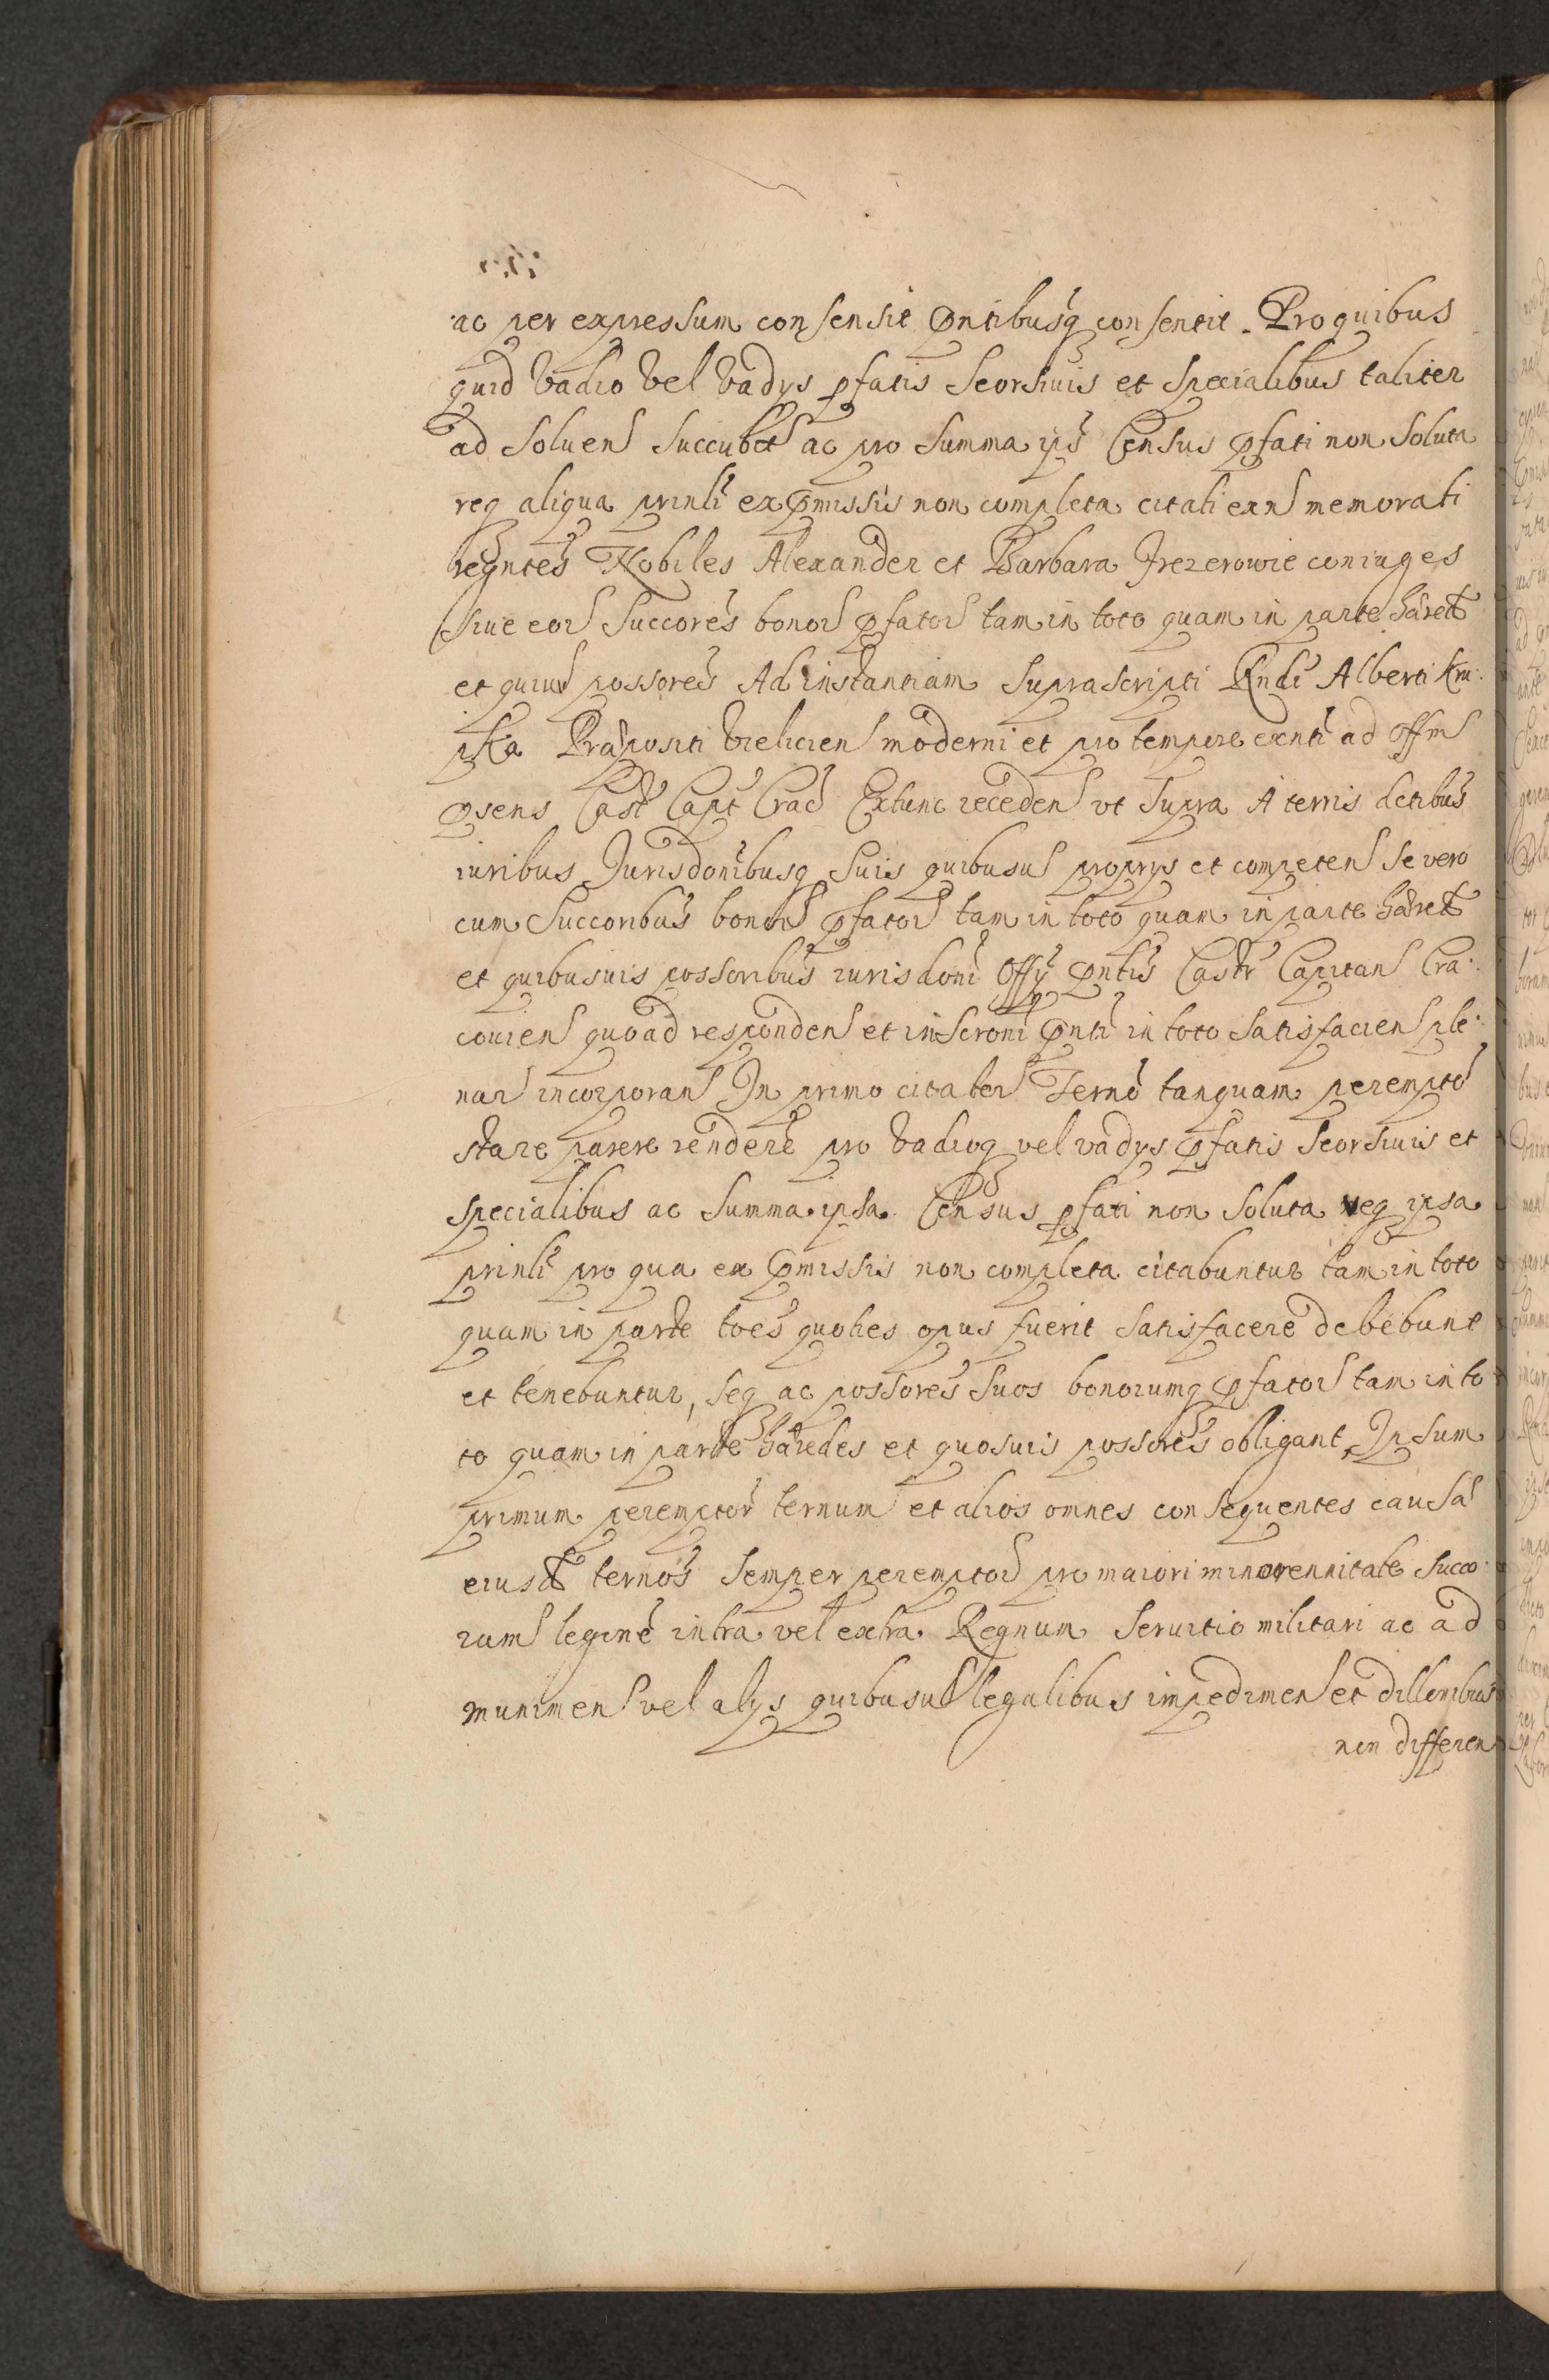 ac per expressum consensit pntibusq consentit. Pro quibus
quid vadio vel vadys pfatis seorsivis et specialibus taliter
ad soluen succubet ac pro summa ips Census pfati non soluta
req aliqua prinli ex pmissis non completa citati exn memorati
regntes Nobiles Alexander et Barbara Jrezerowie coniuges
siue eor succores bonor pfator tam in toto quam in parte hæred
et quiuis possores Ad instantiam suprascripti Rndi Alberti Kru:
pka Præpositi Vielicien moderni et pro tempore exnti ad offm
psens Castr Capt Crac Extunc receden ut supra A terris detibus
iuribus Jurisdonibusq suis quibusuis proprys et competen se vero
cum succoribus bonor pfator tam in toto quam in parte hæred
et quibusuis possoribus iurisdoni Offy pntis Castr Capitan Cra:
couien quoad responden et inscroni pnti in toto satisfacien ple:
nar incorporan In primo citater Terno tanquam perempto
stare parere rendere pro vadioq vel vadys pfatis seorsiuis et
specialibus ac summa ipsa Census pfati non soluta neq ipsa
prinli pro qua ex pmissis non completa citabuntur tam in toto
quam in parte toes quoties opus fuerit satisfacere debebunt
et tenebuntur, seq ac possores suos bonorumq pfator tam in to
to quam in parte hæredes et quosuis possores obligant, Ipsum
primum peremptor ternum et alios omnes consequentes causa
eiusd ternos semper peremptor pro maiori minorennitate succo:
rum legine intra vel extra Regnum seruitio militari ac ad
munimen vel alys quibusuis legalibus impedimen et dillonibus
non differen